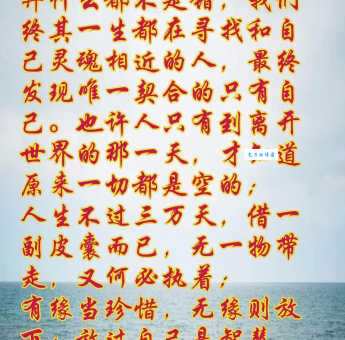 并什么都不是错，我们
终其一生都在寻找和自
己灵魂相近的人，最终
发现唯一契合的只有自
己。也许人只有到离开
世界的那一天，才 道
原来一切都是空的；
人生不过三万天，借一
副皮囊而已，无一物带
走，又何必执着；
有缘当珍惜，无缘则放
下；放过自己是智慧